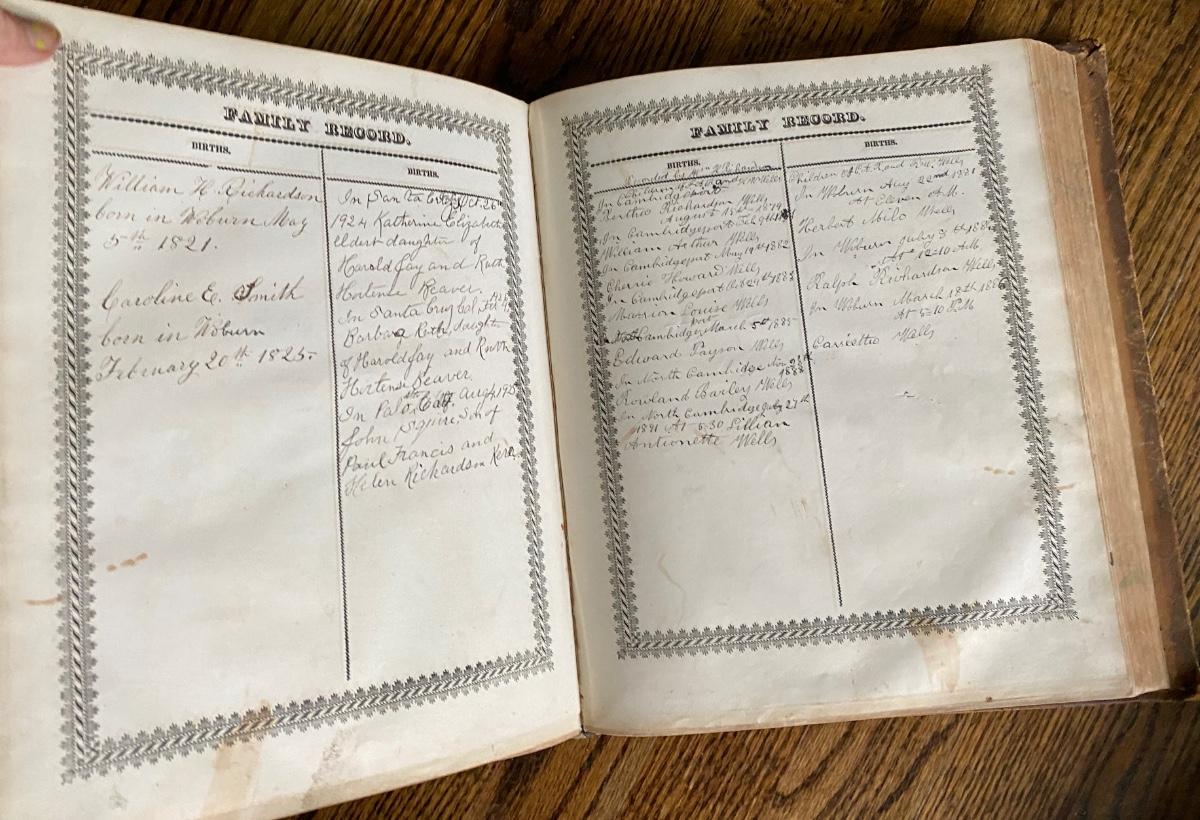 FAMILY RECORD.
BIRTHS.
William H. Richardson
born in Woburn May
5th 1821.
Caroline E. Smith
born in Woburn
February 20th 1825
BIRTHS.
In Santa Cruz Oct. 26
1924 Katherine Elizabeth
eldest daughter of
Harold Jay and Ruth
Hortense Reaver.
In Santa Cruz Cal.
Barbara Ruth, daughter
of Harold Jay and Ruth
Hortense Reaver.
In Palo Aug
John Squire, Son of
Paul Francis and
Helen Richardson
FAMILY RECORD.
BIRTHS.
Recorded by Wm H Richardson
Children of
In Cambridgeport
Richardson Wells
August
In Cambridgeport Feb
William Arthur Wells
In Cambridgeport May 19th 1882
Howard Wells
In Cambridgeport Oct 29th 1883
Marion Louise Wells
Cambridge March 5th 1885
Edward Payson Wells
In North Cambridge Nov
1888
Rowland Bailey Wells
In North Cambridge July 27th
1891 At 5.30 Lillian
Antionette Wells
BIRTHS.
Children of Wells
In Woburn Aug 22nd 1881
At Eleven A.M.
Herbert Milo Wells
In Woburn July
At 12-10 A.M.
Ralph Richardson Wells
In Woburn March 18th 1886
At 5-10 P.M.
Wells